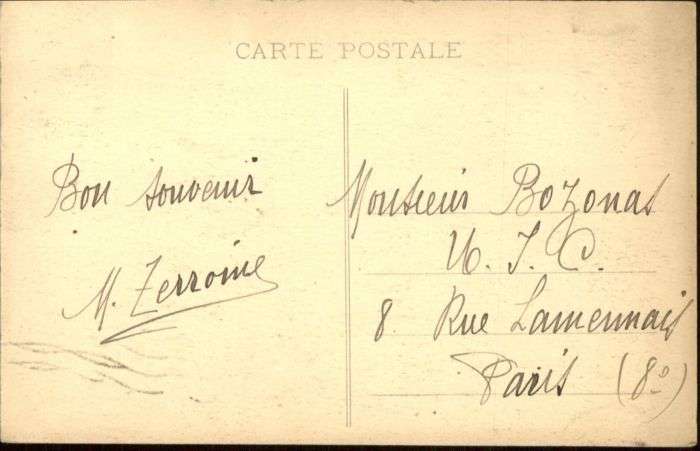 CARTE POSTALE
Bon souvenir
M. Zerroine
Monsieur Bozonat
U. J. C.
8 Rue Lamennais
Paris (8º)